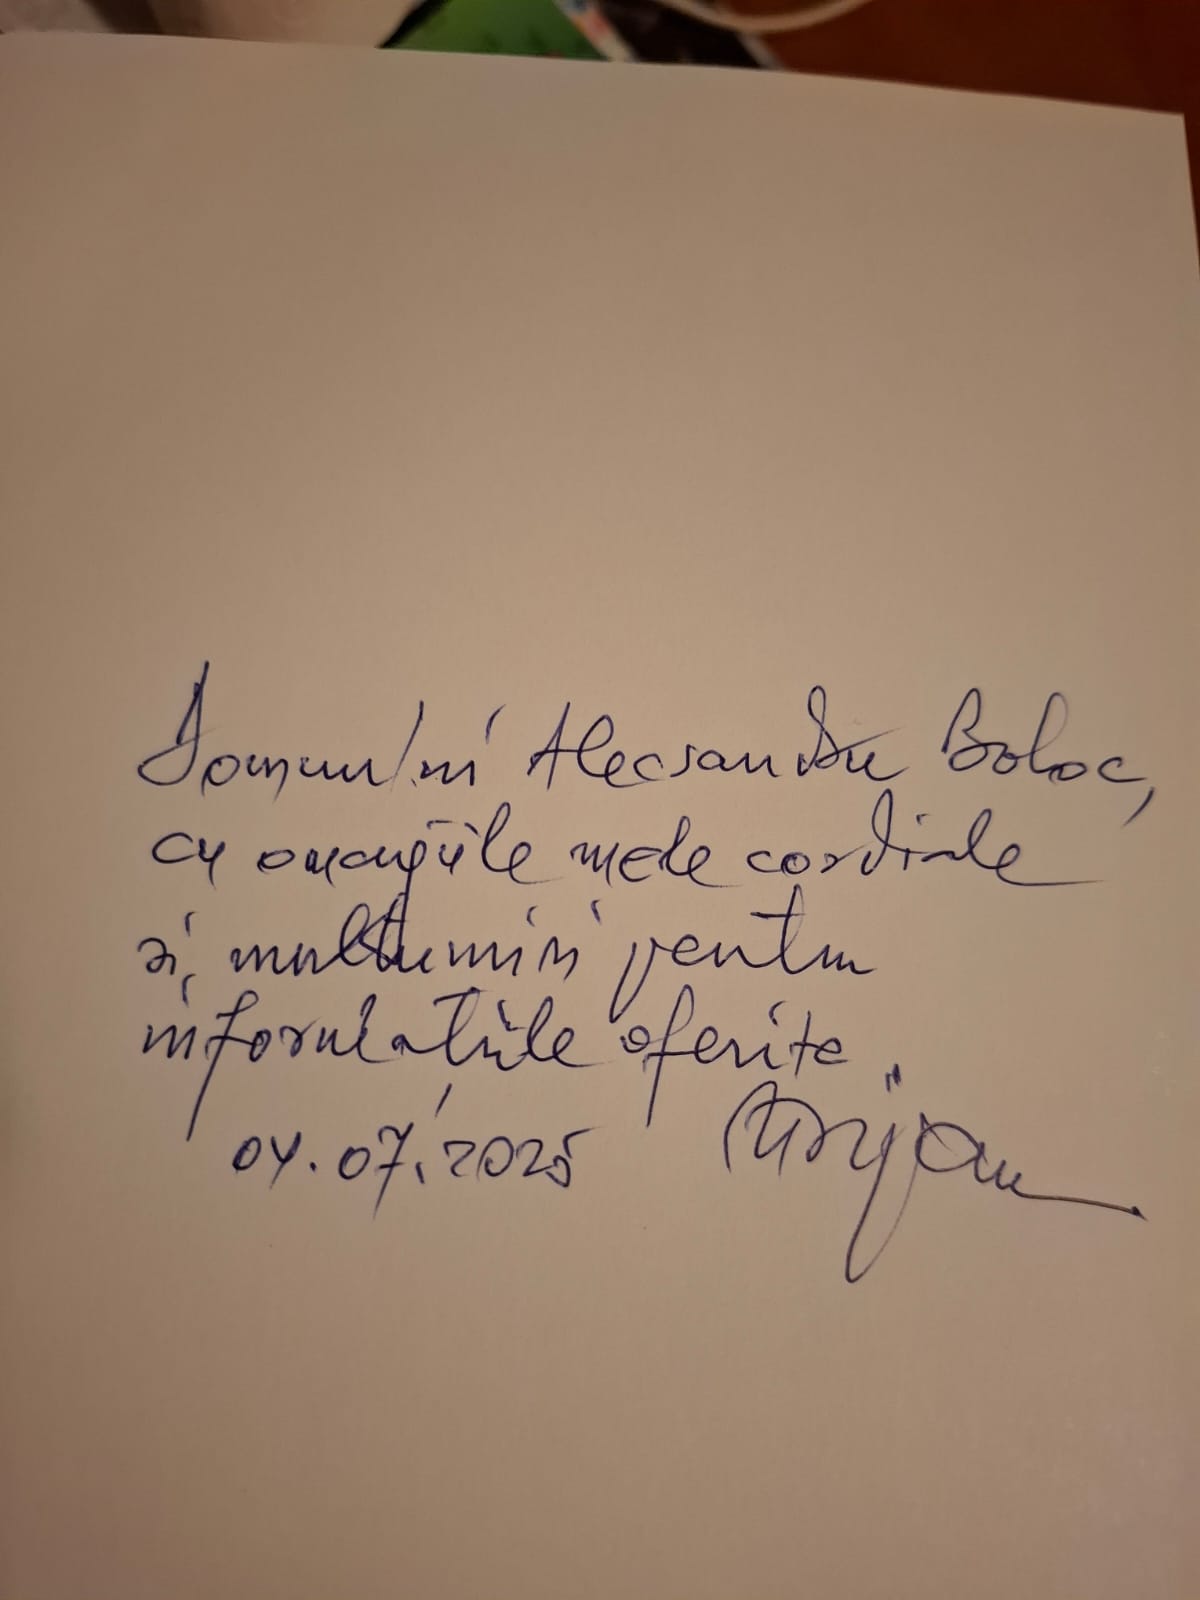 Domnului Alecsandru Boloc,
cu omagiile mele cordiale
și mulțumiri pentru
informațiile oferite.
04.07.2025